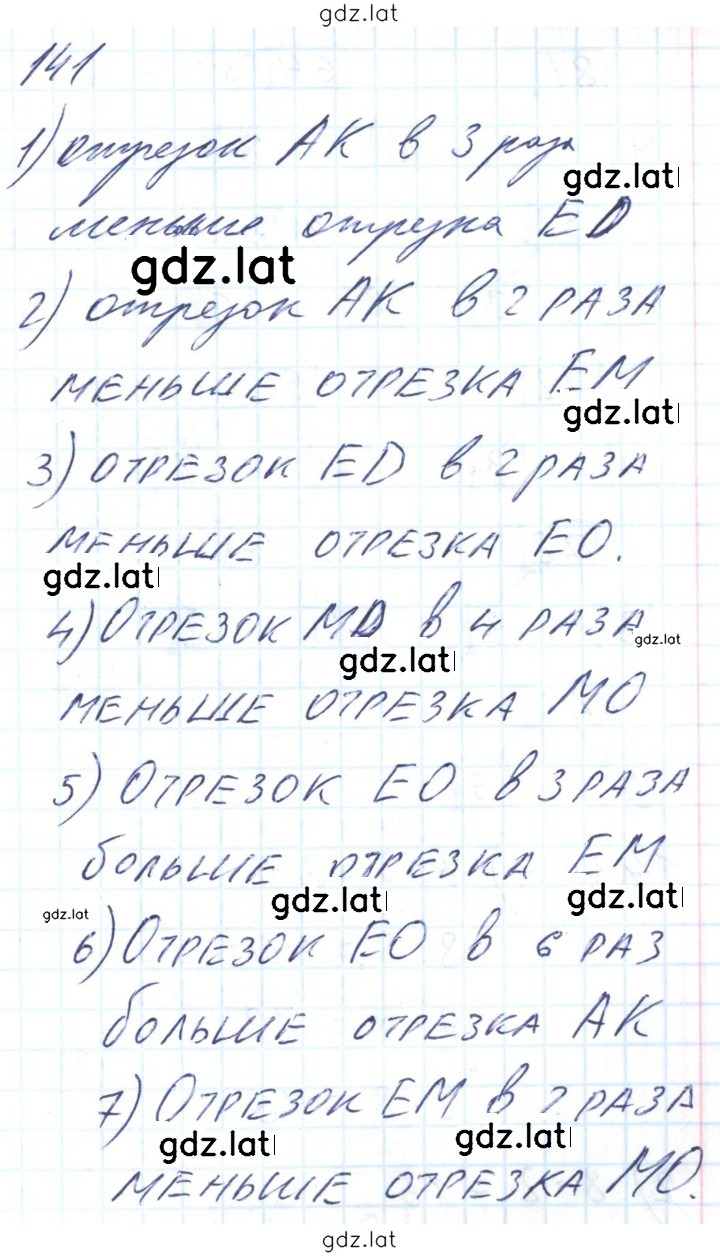 gdz.lat
141
1) отрезок АК в 3 раза
gdz.lat
меньше отрезка ED
gdz.lat
2) отрезок АК в 2 РАЗА
МЕНЬШЕ ОТРЕЗКА ЕМ
gdz.lat
3) ОТРЕЗОК ED в 2 РАЗА
МЕНЬШЕ ОТРЕЗКА ЕО.
gdz.lat
4) ОТРЕЗОК MD в 4 РАЗА
gdz.lat
gdz.lat
МЕНЬШЕ ОТРЕЗКА МО
5) ОТРЕЗОК ЕО в 3 РАЗА
БОЛЬШЕ ОТРЕЗКА ЕМ
gdz.lat gdz.lat
gdz.lat
6) ОТРЕЗОК ЕО в 6 РАЗ
БОЛЬШЕ ОТРЕЗКА АК
7) ОТРЕЗОК ЕМ в 2 РАЗА
gdz.lat gdz.lat
МЕНЬШЕ ОТРЕЗКА МО.
gdz.lat